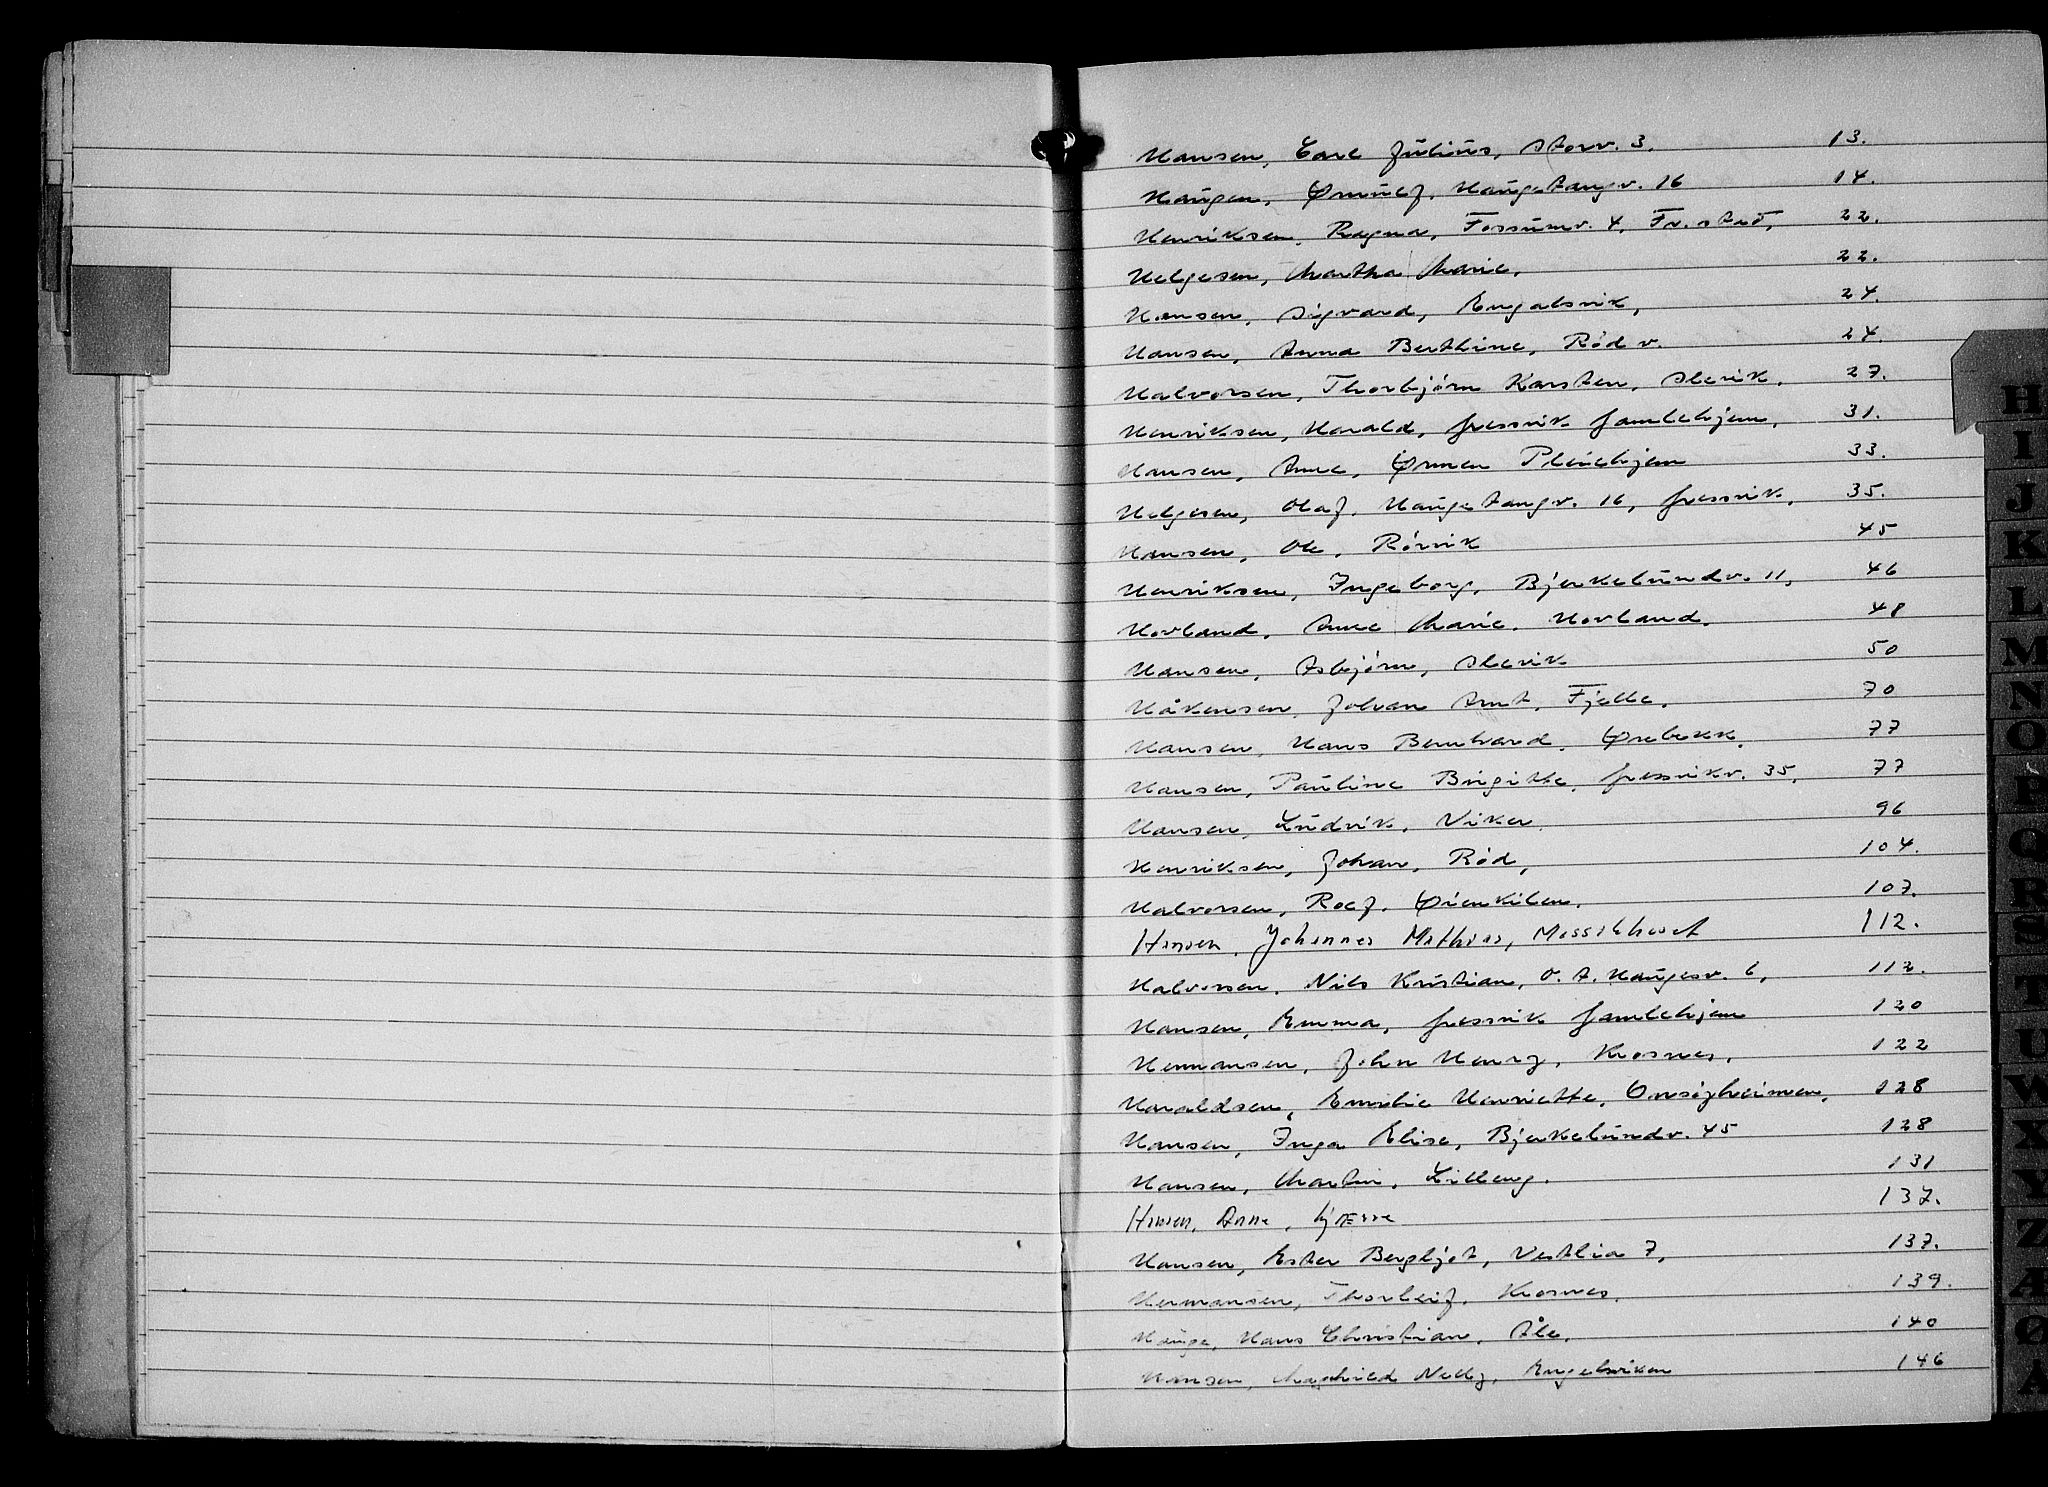 Hansen, Carl Julius, Storv. 3. 13.
Haugen, Ørnulf, Haugetangv. 16 14.
Henriksen, Ragna, Fossumv. 4, Fr.stad, 22.
Helgesen, Martha Marie, 22.
Hansen, Sigvard, Engalsvik, 24.
Hansen, Anna Berthine, Rød v. 24.
Halvorsen, Thorbjørn Karsten, Slevik, 27.
Henriksen, Harald, Gressvik Gamlehjem, 31.
Hansen, Anne, Ørmen Pleiehjem 33.
Helgesen, Olaf, Haugetangv. 16, Gressvik, 35.
Hansen, Ole, Rørvik 45
Henriksen, Ingeborg, Bjerkelundv. 11, 46
Hovland, Anne Marie, Hovland, 48
Hansen, Asbjørn, Slevik 50
Håkensen, Johan Arnt, Fjelle, 70
Hansen, Hans Bernhard, Ørebekk, 77
Hansen, Pauline Birgitte, Gressvikv. 35, 77
Hansen, Ludvik, Viker, 96
Henriksen, Johan, Rød, 104.
Halvorsen, Rolf, Øienkilen, 107.
Hansen, Johannes Mathias, 112.
Halvorsen, Nils Kristian, O. A. Haugesv. 6, 112.
Hansen, Emma, Gressvik Gamlehjem 120
Hermansen, John Henry, Krosnes, 122
Haraldsen, Emilie Henriette, Onsøyheimen, 128
Hansen, Inga Elise, Bjerkelundv. 45 128
Hansen, Martin, Lilleng. 131
Hansen, Anne, 137.
Hansen, Ester Bergljot, Vestlia 7, 137.
Hermansen, Thorleif, Krosnes, 139.
Hauge, Hans Christian, Åle, 140
Hansen, Magnhild Nelly, Engelsviken 146
H
I
J
K
L
M
N
O
P
Q
R
S
T
U
W
X
Y
Z
Æ
Ø
Å